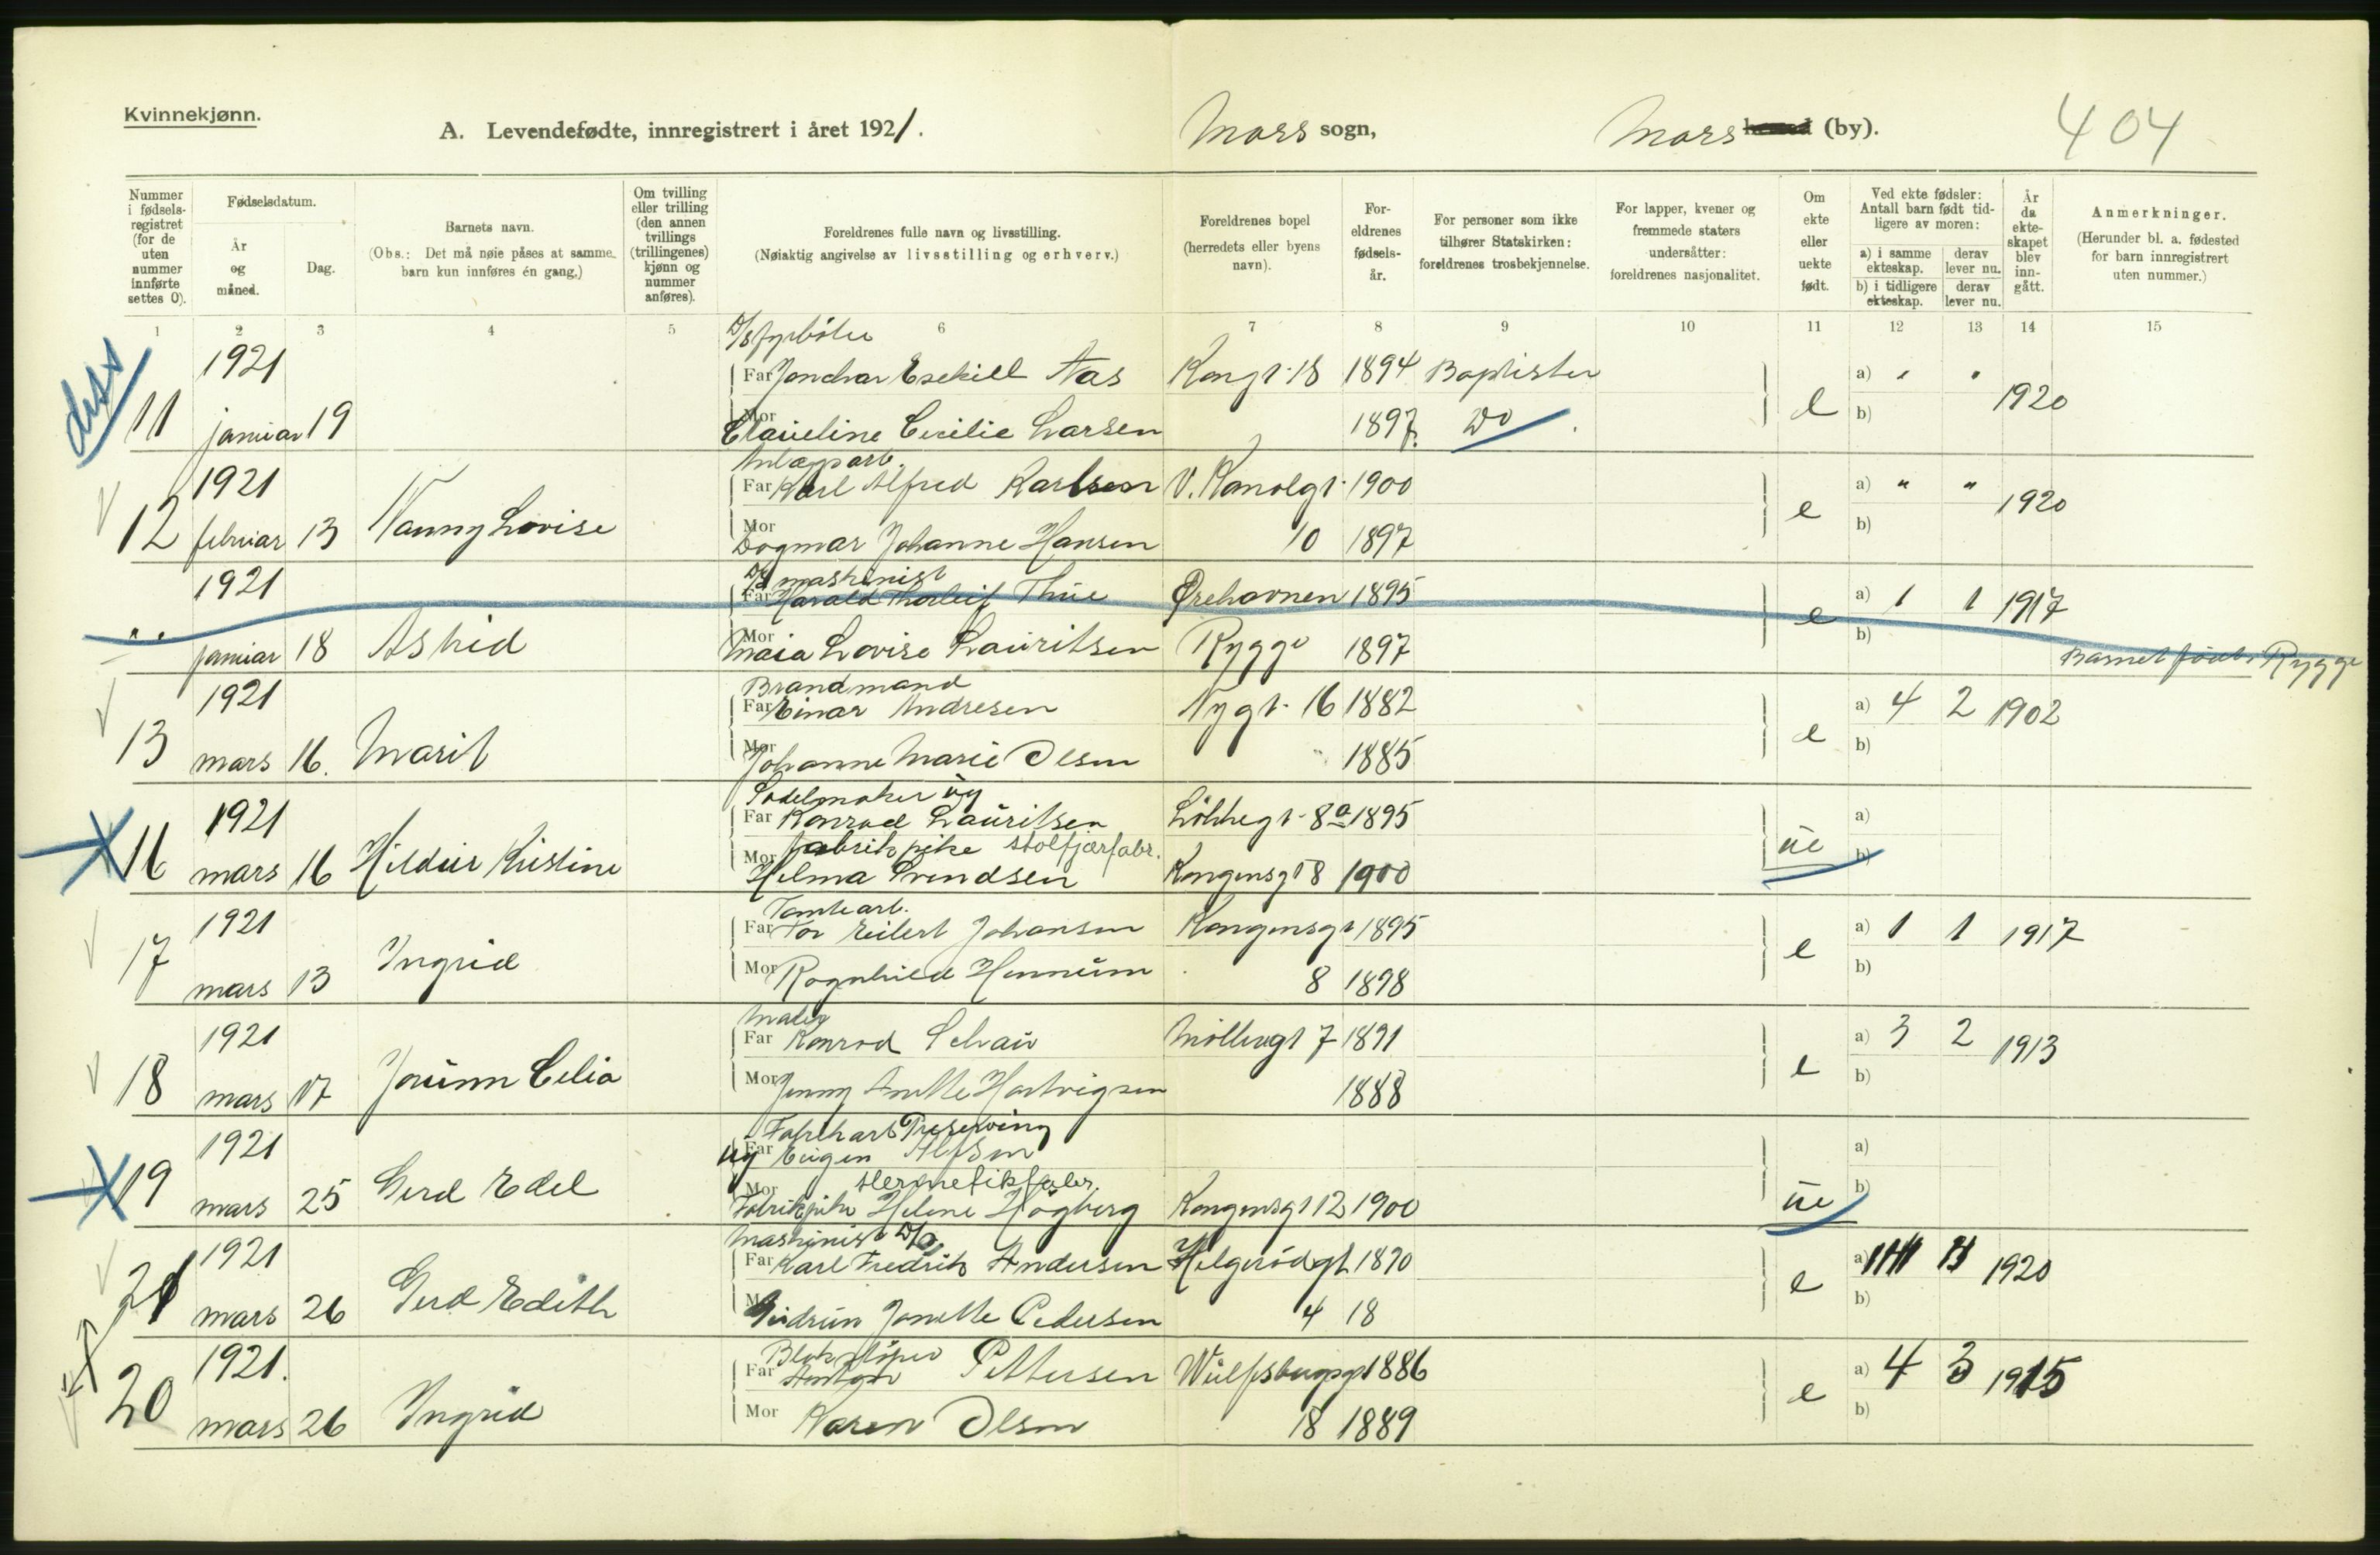 Kvinnekjønn.
A. Levendefødte, innregistrert i året 1921. Moss sogn, Moss herred (by). 404
Nummer i fødselsregistret (for de uten nummer innførte settes 0).
Fødselsdatum.
År og måned.
Dag.
Barnets navn.
(Obs.: Det må nøie påses at samme barn kun innføres én gang.)
Om tvilling eller trilling (den annen tvillings (trillingenes) kjønn og nummer anføres).
Foreldrenes fulle navn og livsstilling.
(Nøiaktig angivelse av livsstilling og erhverv.)
Foreldrenes bopel (herredets eller byens navn).
Foreldrenes fødselsår.
For personer som ikke tilhører Statskirken: foreldrenes trosbekjennelse.
For lapper, kvener og fremmede staters undersåtter: foreldrenes nasjonalitet.
Om ekte eller uekte født.
Ved ekte fødsler: Antall barn født tidligere av moren:
a) i samme ekteskap. derav lever nu.
b) i tidligere ekteskap. derav lever nu.
År da ekteskapet blev inngått.
Anmerkninger.
(Herunder bl. a. fødested for barn innregistrert uten nummer.)
1 2 3 4 5 6 7 8 9 10 11 12 13 14 15
D/S fyrbøter
1921 Far Esekiell Aas Kongt. 18 1894 Baptister a) " "
11 januar 19 Mor Claudine Cecilie Larsen 1897 Do e b) 1920
Anlægsarb.
1921 Far Karl Alfred Karlsen V. Kanalgt. 1900 a) " "
12 februar 13 Nanny Lovise Mor Dagmar Johanne Hansen 10 1897 e b) 1920
D/S maskinist
1921 Far Harald Thorleif Thue Ørehavnen 1895 a) 1 1 1917
" januar 18 Astrid Mor Maia Lovise Lauritsen Rygge 1897 e b) Barnet født i Rygge
Brandmand
1921 Far Einar Andresen Nygt. 16 1882 a) 4 2 1902
13 mars 16. Marit Mor Johanne Marie Olsen " 1885 e b)
Sadelmaker ug
1921 Far Konrad Lauritsen 8a 1895 a)
fabrikpike stolfjærfabr.
16 mars 16 Hildur Kristine Mor Helma Svendsen Kongensgt 8 1900 ue b)
Tomtearb.
1921 Far Tor Eilert Johansen Kongensgt 1895 a) 1 1 1917
17 mars 13 Ingrid Mor Ragnhild Hennum 8 1898 e b)
Maler
1921 Far Konrad Schau Møllergt 7 1891 a) 3 2 1913
18 mars 17 Jorunn Celia Mor Jenny Anette Hartvigsen 1888 e b)
Fabrikarb Preserving
1921 ug Far Eugen Alfsen a)
Hermetikfabr.
19 mars 25 Gerd Edel Mor Fabrikpike Helene Høgberg Kongensgt 12 1900 ue b)
Maskinist D/S
1921 Far Karl Fredrik Andersen Helgerødgt 1870 a) 1920
21 mars 26 Gerd Edith Mor Gudrun Janette Pedersen 4 18 e b)
1921. Far Anton Pettersen Wulfsbergsgt 1886 a) 4 3 1915
20 mars 26 Ingrid Mor Karen Olsen 18 1889 e b)